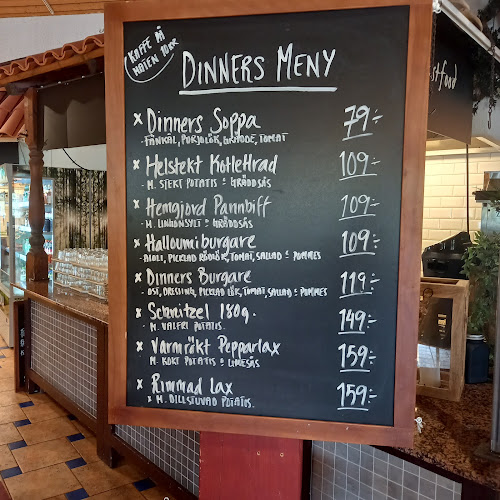 KAFFE PÅ
MATEN 10KR
DINNERS MENY
x Dinners Soppa 79:-
- FÄNKÅL, PURJOLÖK, GRÄDDE, TOMAT
x Helstekt Kotlettrad 109:-
- M. STEKT POTATIS & GRÄDDSÅS
x Hemgjord Pannbiff 109:-
- M. LINGONSYLT & GRÄDDSÅS
x Halloumiburgare 109:-
- AIOLI, PICKLAD RÖDLÖK, TOMAT, SALLAD & POMMES
x Dinners Burgare 119:-
- OST, DRESSING, PICKLAD LÖK, TOMAT, SALLAD & POMMES
x Schnitzel 180g. 149:-
- M. VALFRI POTATIS.
x Varmrökt Pepparlax 159:-
- M. KOKT POTATIS & LIMESÅS
x Rimmad Lax 159:-
x M. DILLSTUVAD POTATIS.
stfood